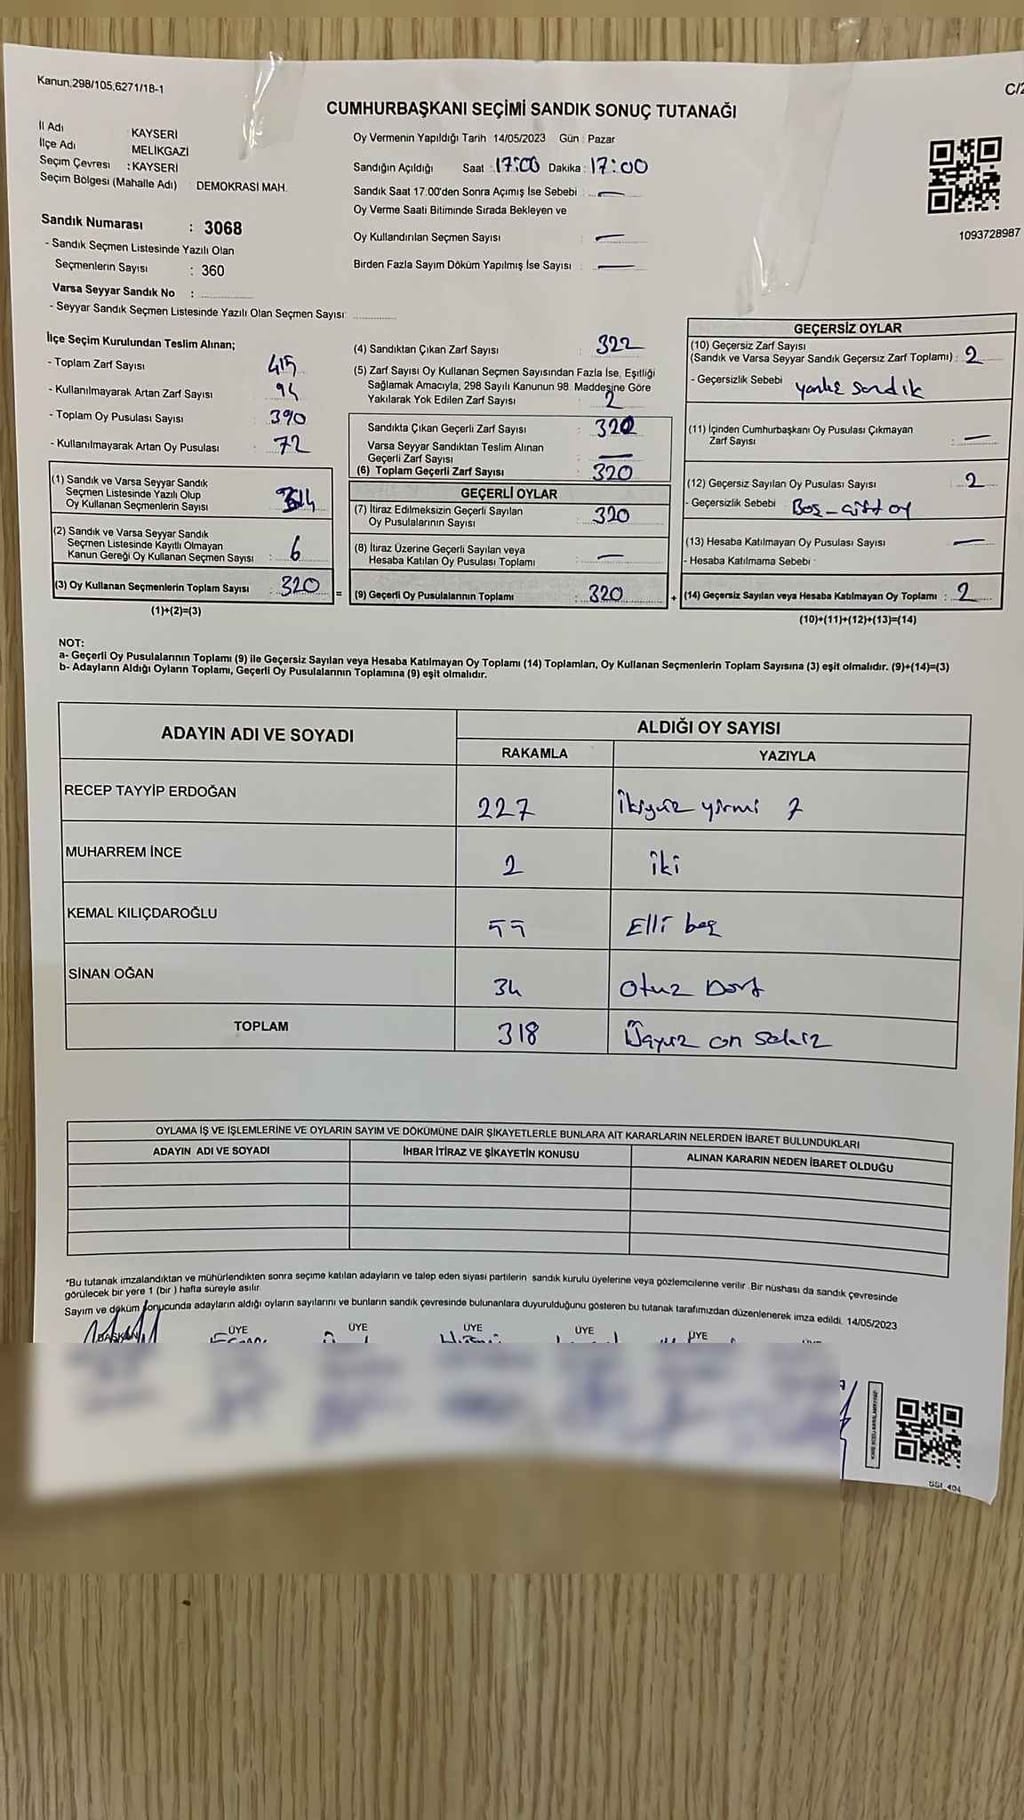 Kanun,298/105,6271/18-1
C/2
CUMHURBAŞKANI SEÇİMİ SANDIK SONUÇ TUTANAĞI
İl Adı KAYSERİ
İlçe Adı MELİKGAZİ
Seçim Çevresi : KAYSERİ
Seçim Bölgesi (Mahalle Adı) DEMOKRASİ MAH.
Sandık Numarası : 3068
- Sandık Seçmen Listesinde Yazılı Olan
Seçmenlerin Sayısı : 360
Varsa Seyyar Sandık No :
- Seyyar Sandık Seçmen Listesinde Yazılı Olan Seçmen Sayısı
Oy Vermenin Yapıldığı Tarih 14/05/2023 Gün : Pazar
Sandığın Açıldığı Saat : 17:00 Dakika : 17:00
Sandık Saat 17.00'den Sonra Açımış İse Sebebi : —
Oy Verme Saati Bitiminde Sırada Bekleyen ve
Oy Kullandırılan Seçmen Sayısı : —
Birden Fazla Sayım Döküm Yapılmış İse Sayısı : —
1093728987
İlçe Seçim Kurulundan Teslim Alınan;
- Toplam Zarf Sayısı 415
- Kullanılmayarak Artan Zarf Sayısı 94
- Toplam Oy Pusulası Sayısı 390
- Kullanılmayarak Artan Oy Pusulası 72
(1) Sandık ve Varsa Seyyar Sandık
Seçmen Listesinde Yazılı Olup
Oy Kullanan Seçmenlerin Sayısı 314
(2) Sandık ve Varsa Seyyar Sandık
Seçmen Listesinde Kayıtlı Olmayan
Kanun Gereği Oy Kullanan Seçmen Sayısı : 6
(3) Oy Kullanan Seçmenlerin Toplam Sayısı : 320 =
(1)+(2)=(3)
(4) Sandıktan Çıkan Zarf Sayısı 322
(5) Zarf Sayısı Oy Kullanan Seçmen Sayısından Fazla İse, Eşitliği
Sağlamak Amacıyla, 298 Sayılı Kanunun 98. Maddesine Göre
Yakılarak Yok Edilen Zarf Sayısı 2
Sandıkta Çıkan Geçerli Zarf Sayısı : 320
Varsa Seyyar Sandıktan Teslim Alınan
Geçerli Zarf Sayısı : —
(6) Toplam Geçerli Zarf Sayısı : 320
GEÇERLİ OYLAR
(7) İtiraz Edilmeksizin Geçerli Sayılan
Oy Pusulalarının Sayısı : 320
(8) İtiraz Üzerine Geçerli Sayılan veya
Hesaba Katılan Oy Pusulası Toplamı : —
(9) Geçerli Oy Pusulalarının Toplamı : 320 +
GEÇERSİZ OYLAR
(10) Geçersiz Zarf Sayısı
(Sandık ve Varsa Seyyar Sandık Geçersiz Zarf Toplamı) : 2
- Geçersizlik Sebebi yanlız sandık
(11) İçinden Cumhurbaşkanı Oy Pusulası Çıkmayan
Zarf Sayısı : —
(12) Geçersiz Sayılan Oy Pusulası Sayısı : 2
- Geçersizlik Sebebi Boş - çift oy
(13) Hesaba Katılmayan Oy Pusulası Sayısı : —
- Hesaba Katılmama Sebebi
(14) Geçersiz Sayılan veya Hesaba Katılmayan Oy Toplamı : 2
(10)+(11)+(12)+(13)=(14)
NOT:
a- Geçerli Oy Pusulalarının Toplamı (9) ile Geçersiz Sayılan veya Hesaba Katılmayan Oy Toplamı (14) Toplamları, Oy Kullanan Seçmenlerin Toplam Sayısına (3) eşit olmalıdır. (9)+(14)=(3)
b- Adayların Aldığı Oyların Toplamı, Geçerli Oy Pusulalarının Toplamına (9) eşit olmalıdır.
ADAYIN ADI VE SOYADI ALDIĞI OY SAYISI
RAKAMLA YAZIYLA
RECEP TAYYİP ERDOĞAN 227 İkiyüz yirmi 7
MUHARREM İNCE 2 iki
KEMAL KILIÇDAROĞLU 55 Elli beş
SİNAN OĞAN 34 Otuz Dört
TOPLAM 318 Üçyüz on sekiz
OYLAMA İŞ VE İŞLEMLERİNE VE OYLARIN SAYIM VE DÖKÜMÜNE DAİR ŞİKAYETLERLE BUNLARA AİT KARARLARIN NELERDEN İBARET BULUNDUKLARI
ADAYIN ADI VE SOYADI İHBAR İTİRAZ VE ŞİKAYETİN KONUSU ALINAN KARARIN NEDEN İBARET OLDUĞU
*Bu tutanak imzalandıktan ve mühürlendikten sonra seçime katılan adayların ve talep eden siyasi partilerin sandık kurulu üyelerine veya gözlemcilerine verilir. Bir nüshası da sandık çevresinde
görülecek bir yere 1 (bir) hafta süreyle asılır.
Sayım ve döküm sonucunda adayların aldığı oyların sayılarını ve bunların sandık çevresinde bulunanlara duyurulduğunu gösteren bu tutanak tarafımızdan düzenlenerek imza edildi. 14/05/2023
BAŞKAN ÜYE ÜYE ÜYE ÜYE ÜYE